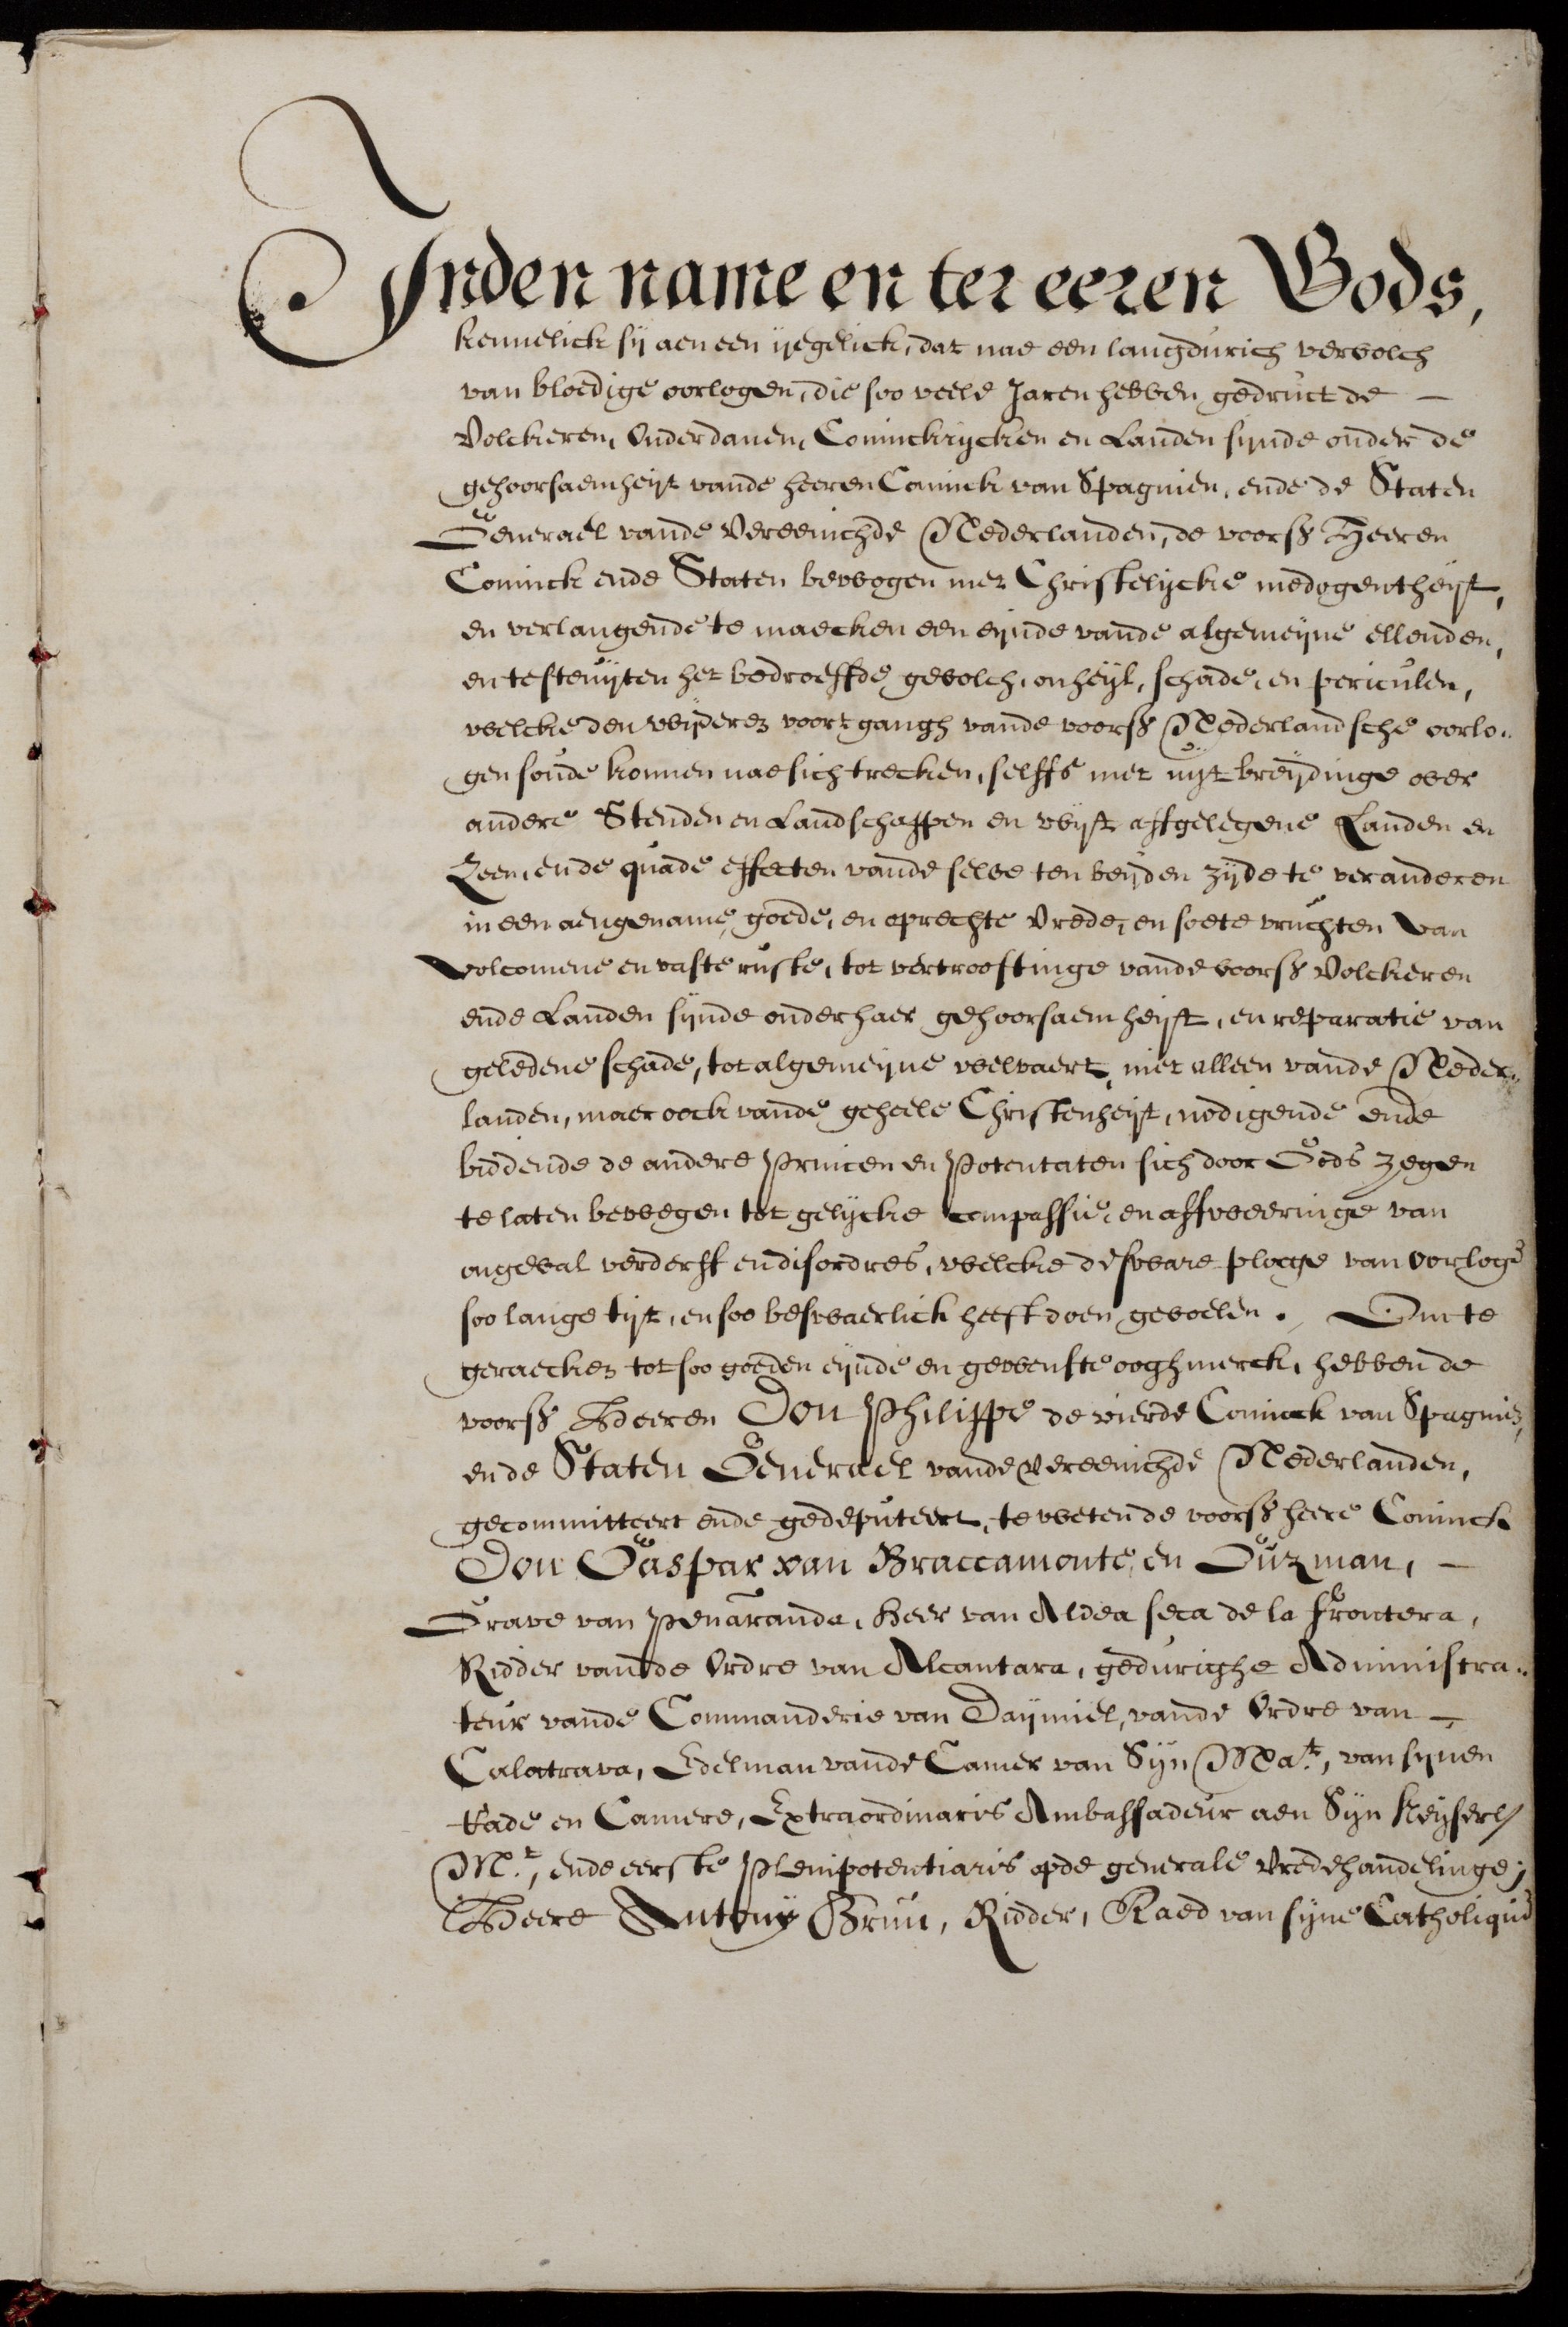 Inden name en ter eeren Gods,
kennelick sij aen een ijegelick, dat nae een langdurich vervolch
van bloedige oorlogen, die soo veele Jaren hebben gedruct de —
Volckeren, Onderdanen, Coninckrijcken en Landen sijnde onder de
gehoorsaemheijt vande heeren Coninck van Spagnien, ende de Staten
Generael vande Vereenichde Nederlanden, de voorsß Heeren
Coninck ende Staten bewogen met Christelijcke medogentheijt,
en verlangende te maecken een eijnde vande algemeijne ellenden,
en te stuijten het bedroeffde gevolch, onheijl, schade, en periculen,
welcke den wijderen voortgangh vande voorsß Nederlandsche oorlo„
gen soude konnen nae sich trecken, selffs met uijtbreijdinge over
andere Stenden en Landschappen en wijt affgelegene Landen en
Zeen, ende quade effecten vande selve ten beijden zijde te veranderen
in een aengename, goede, en oprechte Vrede, en soete vruchten van
volcomene en vaste ruste, tot vertroostinge vande voorsß Volckeren
ende Landen sijnde onder haer gehoorsaemheijt, en reparatie van
geledene schade, tot algemeijne welvaert, niet alleen vande Neder„
landen, maer oock vande geheele Christenheijt, nodigende ende
biddende de andere Princen en Potentaten sich door Gods zegen
te laten bewegen tot gelijcke compassie, en affweeringe van
ongeval verderff en disordres, welcke de sware plage van oorloge
soo lange tijt, en soo beswaerlick heeft doen gevoelen. Om te
geraecken tot soo goeden eijnde en gewenste ooghmerck, hebben de
voorsß Heeren Don Philippe de vierde Coninck van Spagnien,
en de Staten Generael vande Vereenichde Nederlanden,
gecommitteert ende gedeputeert, te weten de voorsß heere Coninck
Don Gaspar van Braccamonte, en Guzman, —
Grave van Penaranda, Heer van Aldea seca de la Frontera,
Ridder van de Ordre van Alcantara, gedurighe Administra„
teur vande Commanderie van Daijmiel, vande Ordre van —
Calatrava, Edelman vande Camer van Sijn Mat., van sijnen
Rade en Camere, Extraordinaris Ambassadeur aen Sijn Keijserl
Mt., ende eerste Plenipotentiaris opde generale Vredehandelinge;
Heere Antony Brun, Ridder, Raed van sijne Catholique